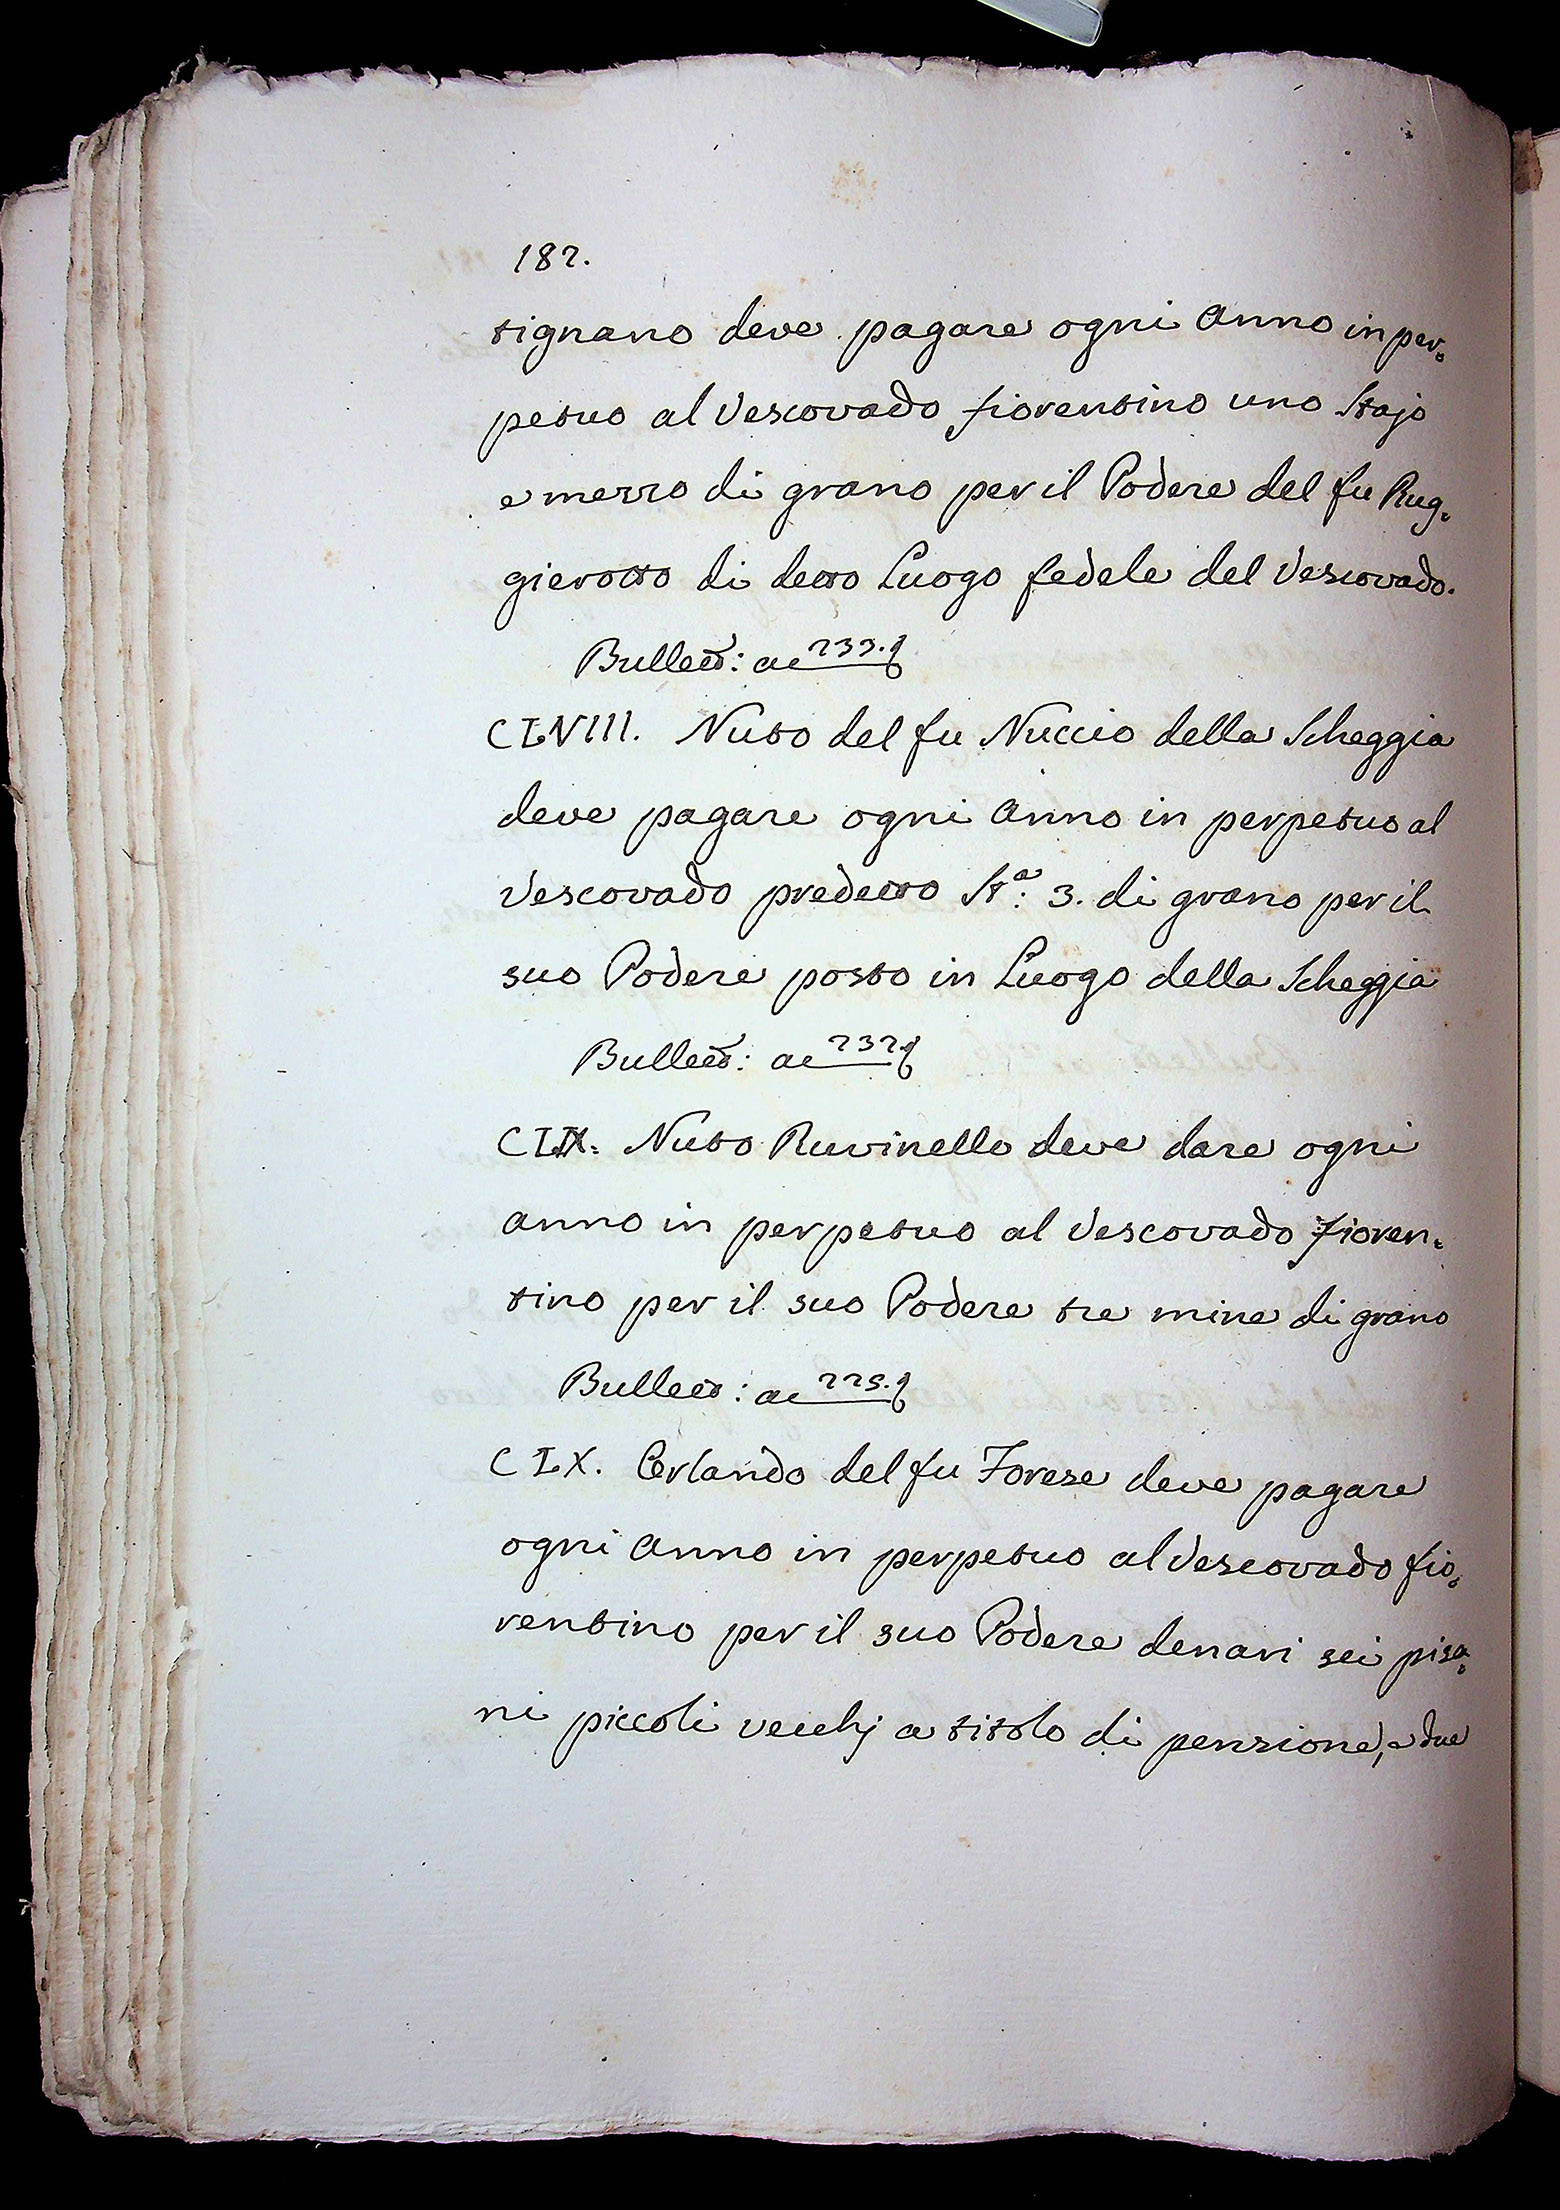 182.
tignano deve pagare ogni Anno in per=
petuo al Vescovado fiorentino uno Stajo
e mezzo di grano per il Podere del fu Rug=
gierotto di detto Luogo fedele del Vescovado.
Bullett: ac 233.
CLVIII. Nuto del fu Nuccio della Scheggia
deve pagare ogni Anno in perpetuo al
Vescovado predetto Stª: 3. di grano per il
suo Podere posto in Luogo della Scheggia
Bullett: ac 232
CLIX: Nuto Ruvinello deve dare ogni
anno in perpetuo al Vescovado fioren=
tino per il suo Podere tre mine di grano
Bullett: ac 225.
CLX. Orlando del fu Forese deve pagare
ogni Anno in perpetuo al Vescovado fio=
rentino per il suo Podere denari sei pisa=
ni piccoli vecchj a titolo di pensione, e due